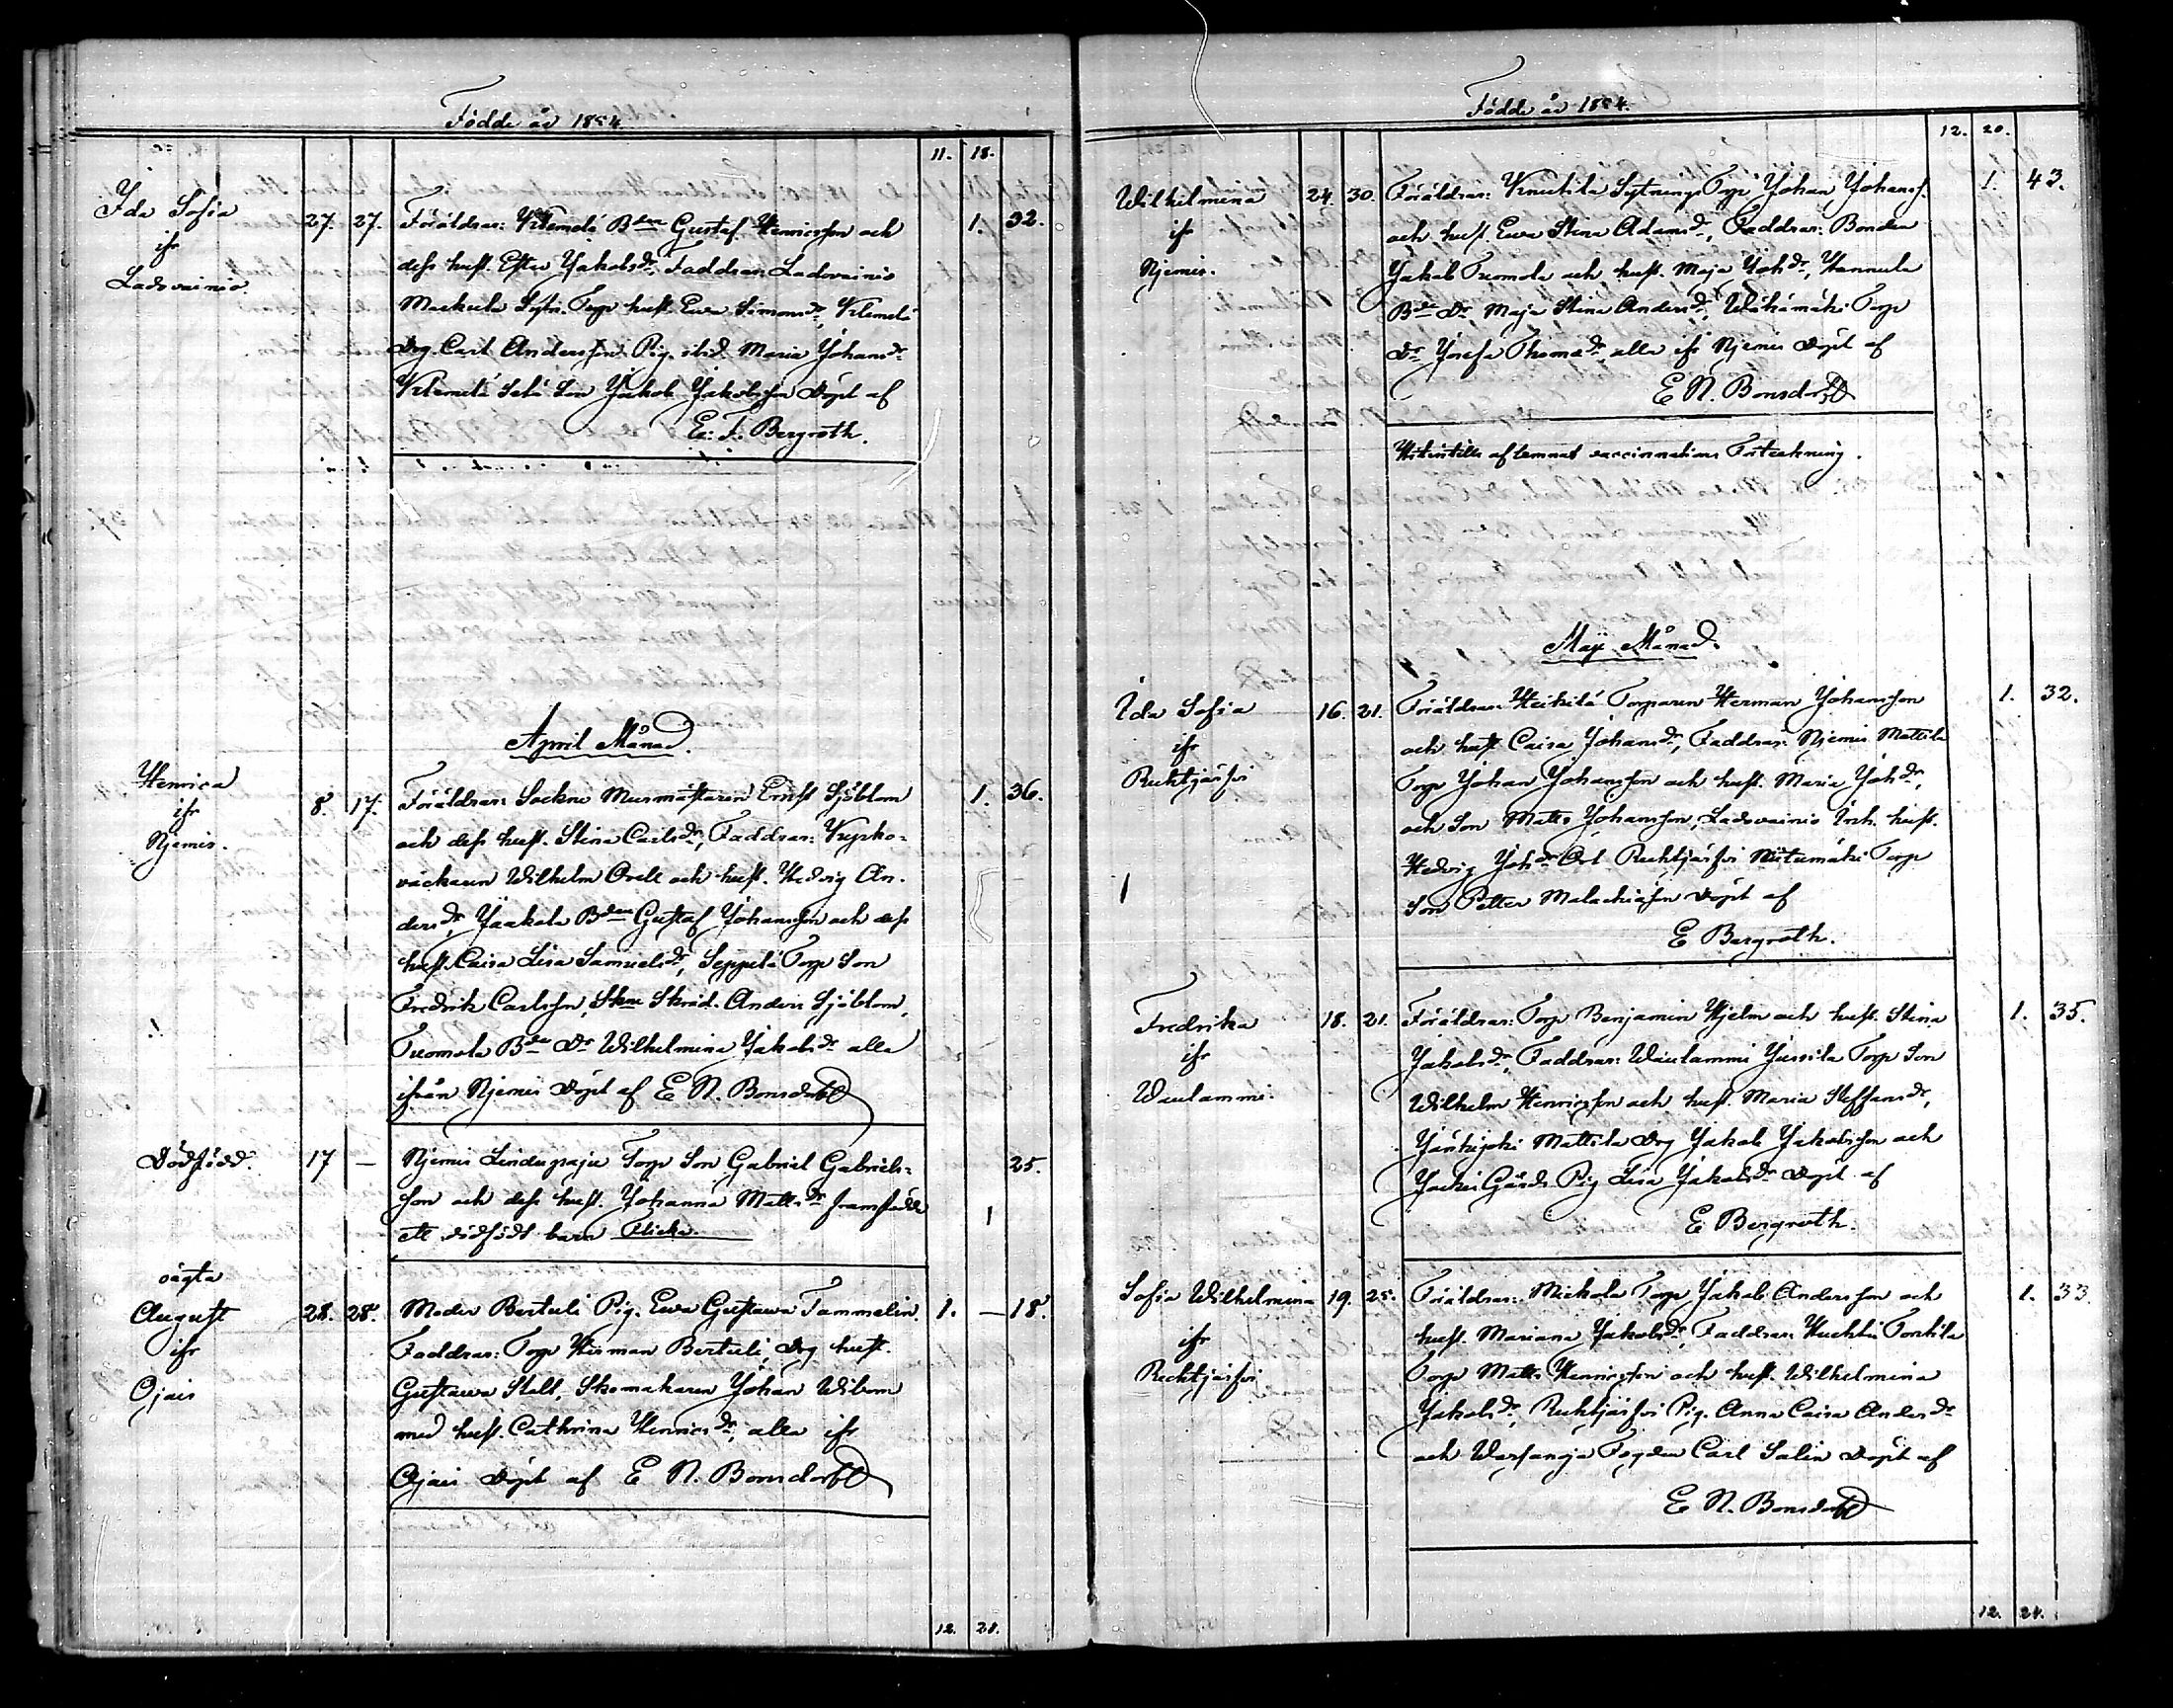 Födde år 1854.
11. 18.
Ida Sofia
ifr
Ladovainio.
27. 27. Föräldrar: Klemelä Bden Gustaf Henricsson och 1. 32.
dess hust. Ester Jakobsdr, Faddrar: Ladovainio
Markula Sytn. Torp hust. Ewa Simonsdr, Klemelä
Drg. Carl Andersson Pig. ibid. Maria Johansdr
Klemelä Son Jakob Jakobsson Döpt af
E. F. Bergroth.
April Månad.
Henrica
ifr
Njemis.
8. 17. Föräldrar: Sockne Murmästaren Ernst Sjöblom 1. 36.
och dess hust. Stina Carlsdr, Faddrar: Kyrko-
väckaren Wilhelm Orell och hust. Hedvig An-
dersdr, Jaakola Bden Gustaf Johansson och dess
hust. Caisa Lisa Samuelsdr, Seppelä Torp Son
Fredrik Carlsson, Skne Skräd. Anders Sjöblom,
Tuomola Bde Dr Wilhelmina Jakobsdr alla
ifrån Njemis Döpt af E N. Bonsdorff
Dödfödd. 17 — Njemis Lindupaju Torp Son Gabriel Gabriels- 25.
son och dess hust. Johanna Mattsdr framfödde 1
ett dödfödt barn Flicka.
oägta
August
ifr
Ojais
28. 28. Moder Bertuli Pig. Ewa Gustawa Tammelin. 1. — 18.
Faddrar: Torp Herman Bertuli, Drg hust.
Gustawa Stolt, Skomakaren Johan Wibom
med hust. Cathrina Henricsdr, alla ifr
Ojais Döpt af E N. Bonsdorff
12. 21.
Födde år 1854.
12. 20.
Wilhelmina
ifr
Njemis.
24. 30. Föräldrar: Knuutila Sytnings Torp Johan Johanss. 1. 43.
och hust. Ewa Stina Adamsd, Faddrar: Bonden
Jakob Tuomola och hust. Maja Johdr, Hannula
Bde Dr, Maja Stina Andersdr, Wähämäki Torp
Dr Josefa Thomasdr, alla ifr Njemis Döpt af
E N. Bonsdorff
Hitintills aflemnat vaccinnations Förteckning.
Maji Månad.
Ida Sofia
ifr
Ruhtjärfvi
16. 21. Föräldrar: Heikilä Torparen Herman Johansson 1. 32.
och hust. Caisa Johansdr, Faddrar: Njemis Mattila
Torp Johan Johansson och hust. Maria Johdr,
och Son Matts Johansson, Ladovainio Inh. hust.
Hedvig Johdr Ruhtjärfvi Torp
Son Petter Malachiason Döpt af
E Bergroth.
Fredrika
ifr
Waulammi.
18. 21. Föräldrar: Torp Benjamin Hjelm och hust. Stina 1. 35.
Jakobsdr, Faddrar: Waulammi Jussila Torp Son
Wilhelm Henricsson och hust. Maria Steffansdr,
Mattila Drg Jakob Jakobsson och
Jockis Gårds Pig Lisa Jakobsdr Döpt af
E Bergroth.
Sofia Wilhelmina
ifr
Ruhtjärfvi
19. 25. Föräldrar: Mickola Torp Jakob Andersson och 1. 33.
hust. Mariana Jakobsdr, Faddrar: Huhtis Torkila
Torp Matts Henricsson och hust. Wilhelmina
Jakobsdr, Ruhtjärfvi Pig. Anna Caisa Andersdr
och Warfanja Fogden Carl Salin Döpt af
E N. Bonsdorff
12. 24.